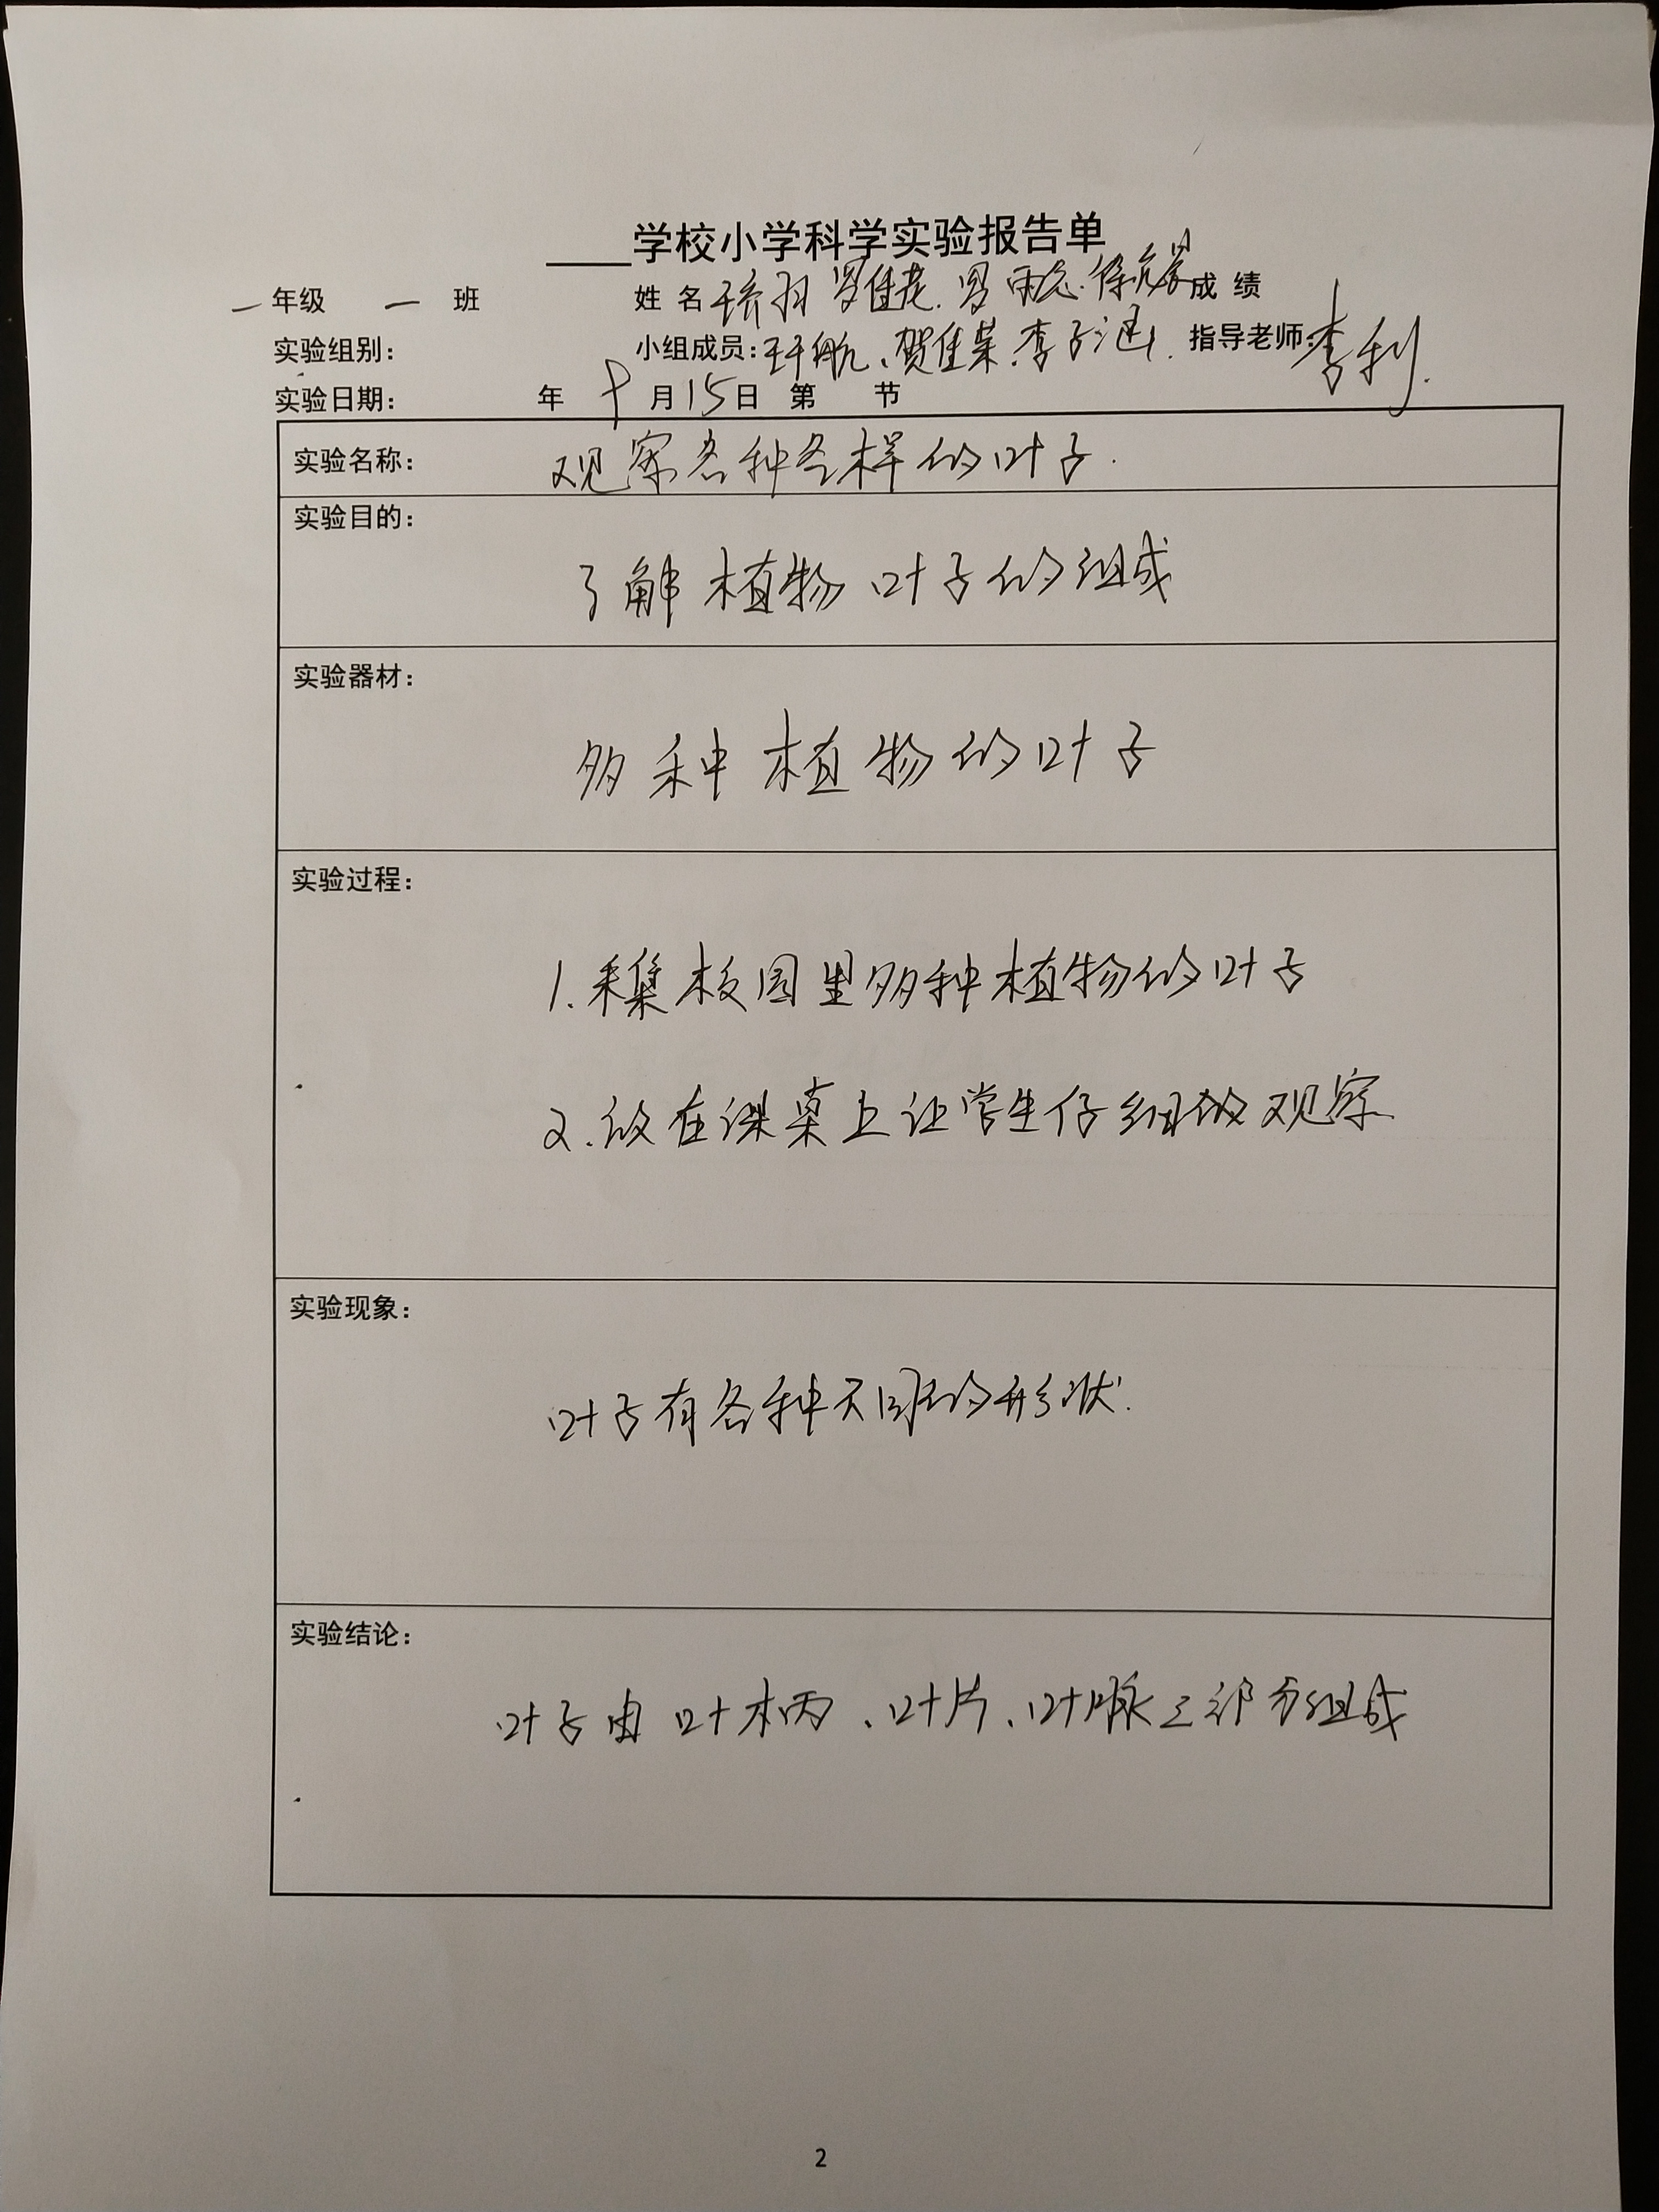 ____学校小学科学实验报告单
一年级 一 班 姓 名 罗佳花. 罗雨 徐 成 绩
实验组别： 小组成员：王千航、贺佳荣.李子涵. 指导老师：李利.
实验日期： 年 十月15日 第 节
实验名称： 观察各种各样的叶子.
实验目的：
了解植物叶子的组成
实验器材：
多种植物的叶子
实验过程：
1.采集校园里多种植物的叶子
2.放在课桌上让学生仔细的观察
实验现象：
叶子有各种不同的形状.
实验结论：
叶子由叶柄、叶片、叶脉三部分组成
2